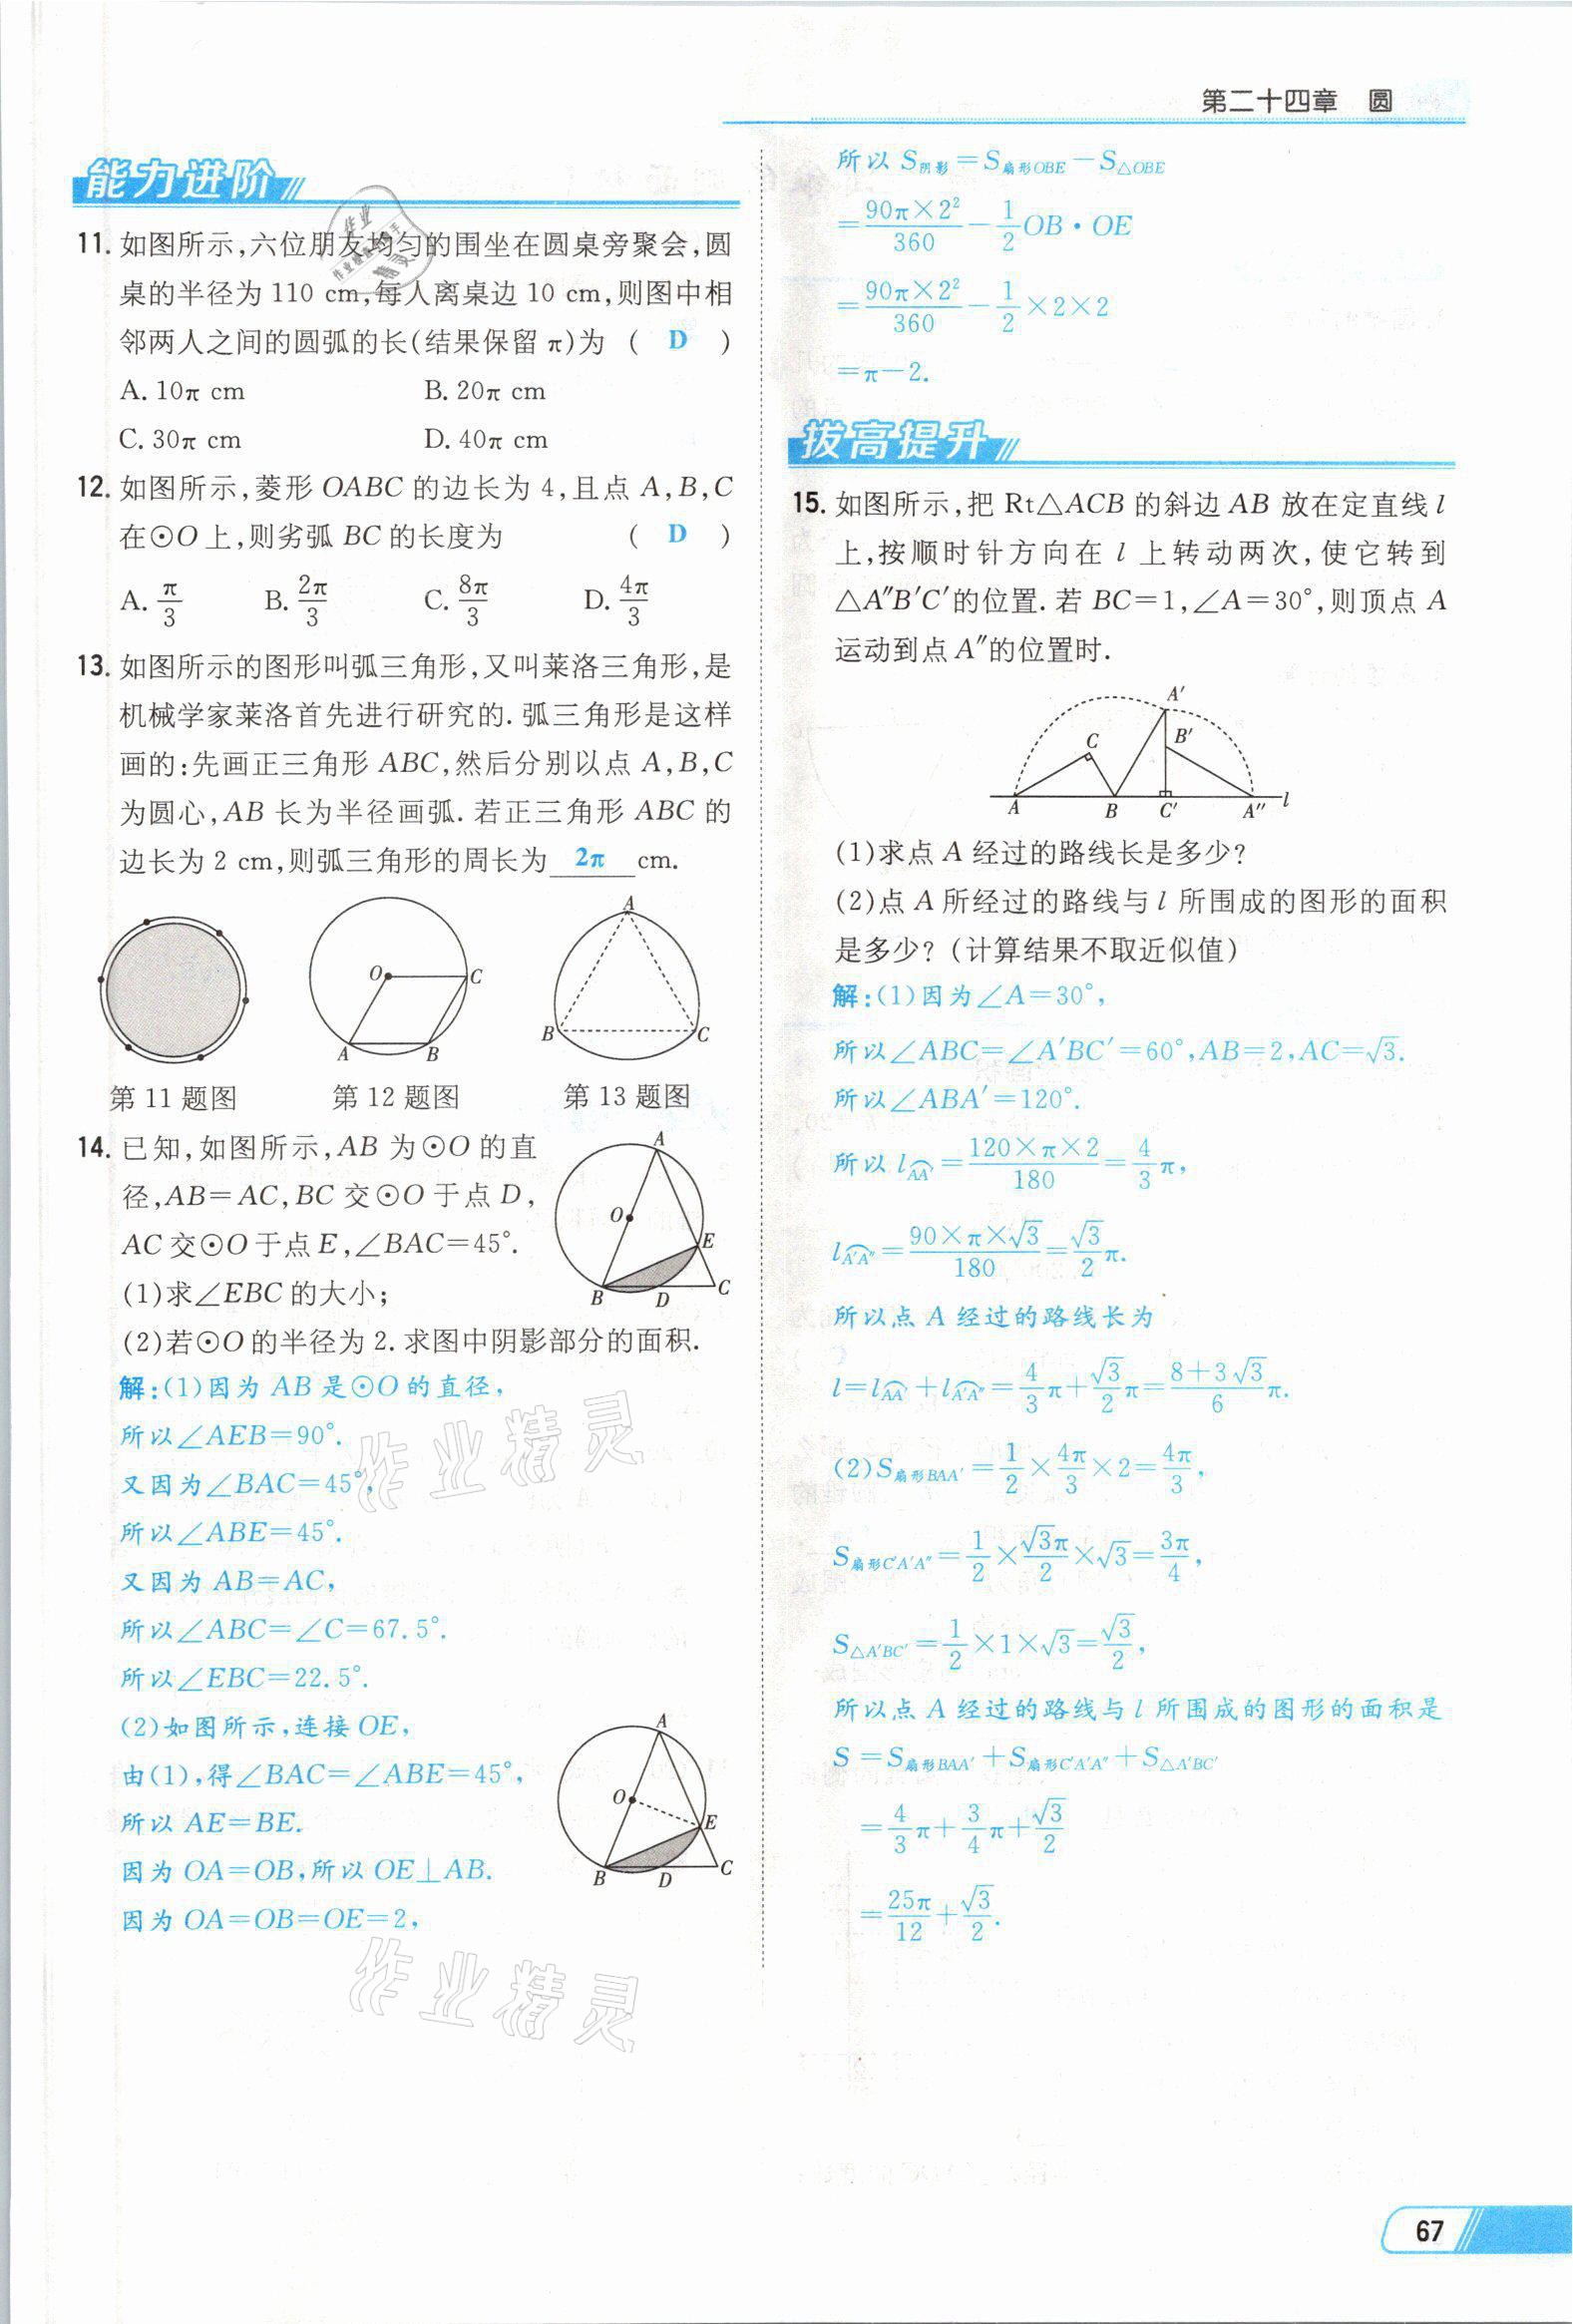 第二十四章 圆
能力进阶
11. 如图所示,六位朋友均匀的围坐在圆桌旁聚会,圆
桌的半径为 110 cm,每人离桌边 10 cm,则图中相
邻两人之间的圆弧的长(结果保留 π)为 ( D )
A. 10π cm B. 20π cm
C. 30π cm D. 40π cm
12. 如图所示,菱形 OABC 的边长为 4,且点 A,B,C
在⊙O 上,则劣弧 BC 的长度为 ( D )
A. π/3 B. 2π/3 C. 8π/3 D. 4π/3
13. 如图所示的图形叫弧三角形,又叫莱洛三角形,是
机械学家莱洛首先进行研究的. 弧三角形是这样
画的:先画正三角形 ABC,然后分别以点 A,B,C
为圆心,AB 长为半径画弧. 若正三角形 ABC 的
边长为 2 cm,则弧三角形的周长为 2π cm.
O C A B
A B C
第 11 题图 第 12 题图 第 13 题图
14. 已知,如图所示,AB 为⊙O 的直
径,AB=AC,BC 交⊙O 于点 D,
AC 交⊙O 于点 E,∠BAC=45°.
(1)求∠EBC 的大小;
(2)若⊙O 的半径为 2. 求图中阴影部分的面积.
A O E B D C
解:(1)因为 AB 是⊙O 的直径,
所以∠AEB=90°.
又因为∠BAC=45°,
所以∠ABE=45°.
又因为 AB=AC,
所以∠ABC=∠C=67.5°.
所以∠EBC=22.5°.
(2)如图所示,连接 OE,
由(1),得∠BAC=∠ABE=45°,
所以 AE=BE.
因为 OA=OB,所以 OE⊥AB.
因为 OA=OB=OE=2,
A O E B D C
所以 S阴影=S扇形OBE−S△OBE
=90π×2²/360−1/2 OB·OE
=90π×2²/360−1/2×2×2
=π−2.
拔高提升
15. 如图所示,把 Rt△ACB 的斜边 AB 放在定直线 l
上,按顺时针方向在 l 上转动两次,使它转到
△A″B′C′的位置. 若 BC=1,∠A=30°,则顶点 A
运动到点 A″的位置时.
A′ C B′ A B C′ A″ l
(1)求点 A 经过的路线长是多少?
(2)点 A 所经过的路线与 l 所围成的图形的面积
是多少? (计算结果不取近似值)
解:(1)因为∠A=30°,
所以∠ABC=∠A′BC′=60°,AB=2,AC=√3.
所以∠ABA′=120°.
所以 l⌒AA′=120×π×2/180=4/3π,
l⌒A′A″=90×π×√3/180=√3/2π.
所以点 A 经过的路线长为
l=l⌒AA′+l⌒A′A″=4/3π+√3/2π=8+3√3/6π.
(2)S扇形BAA′=1/2×4π/3×2=4π/3,
S扇形C′A′A″=1/2×√3π/2×√3=3π/4,
S△A′BC′=1/2×1×√3=√3/2,
所以点 A 经过的路线与 l 所围成的图形的面积是
S=S扇形BAA′+S扇形C′A′A″+S△A′BC′
=4/3π+3/4π+√3/2
=25π/12+√3/2.
作业精灵
作业精灵
67